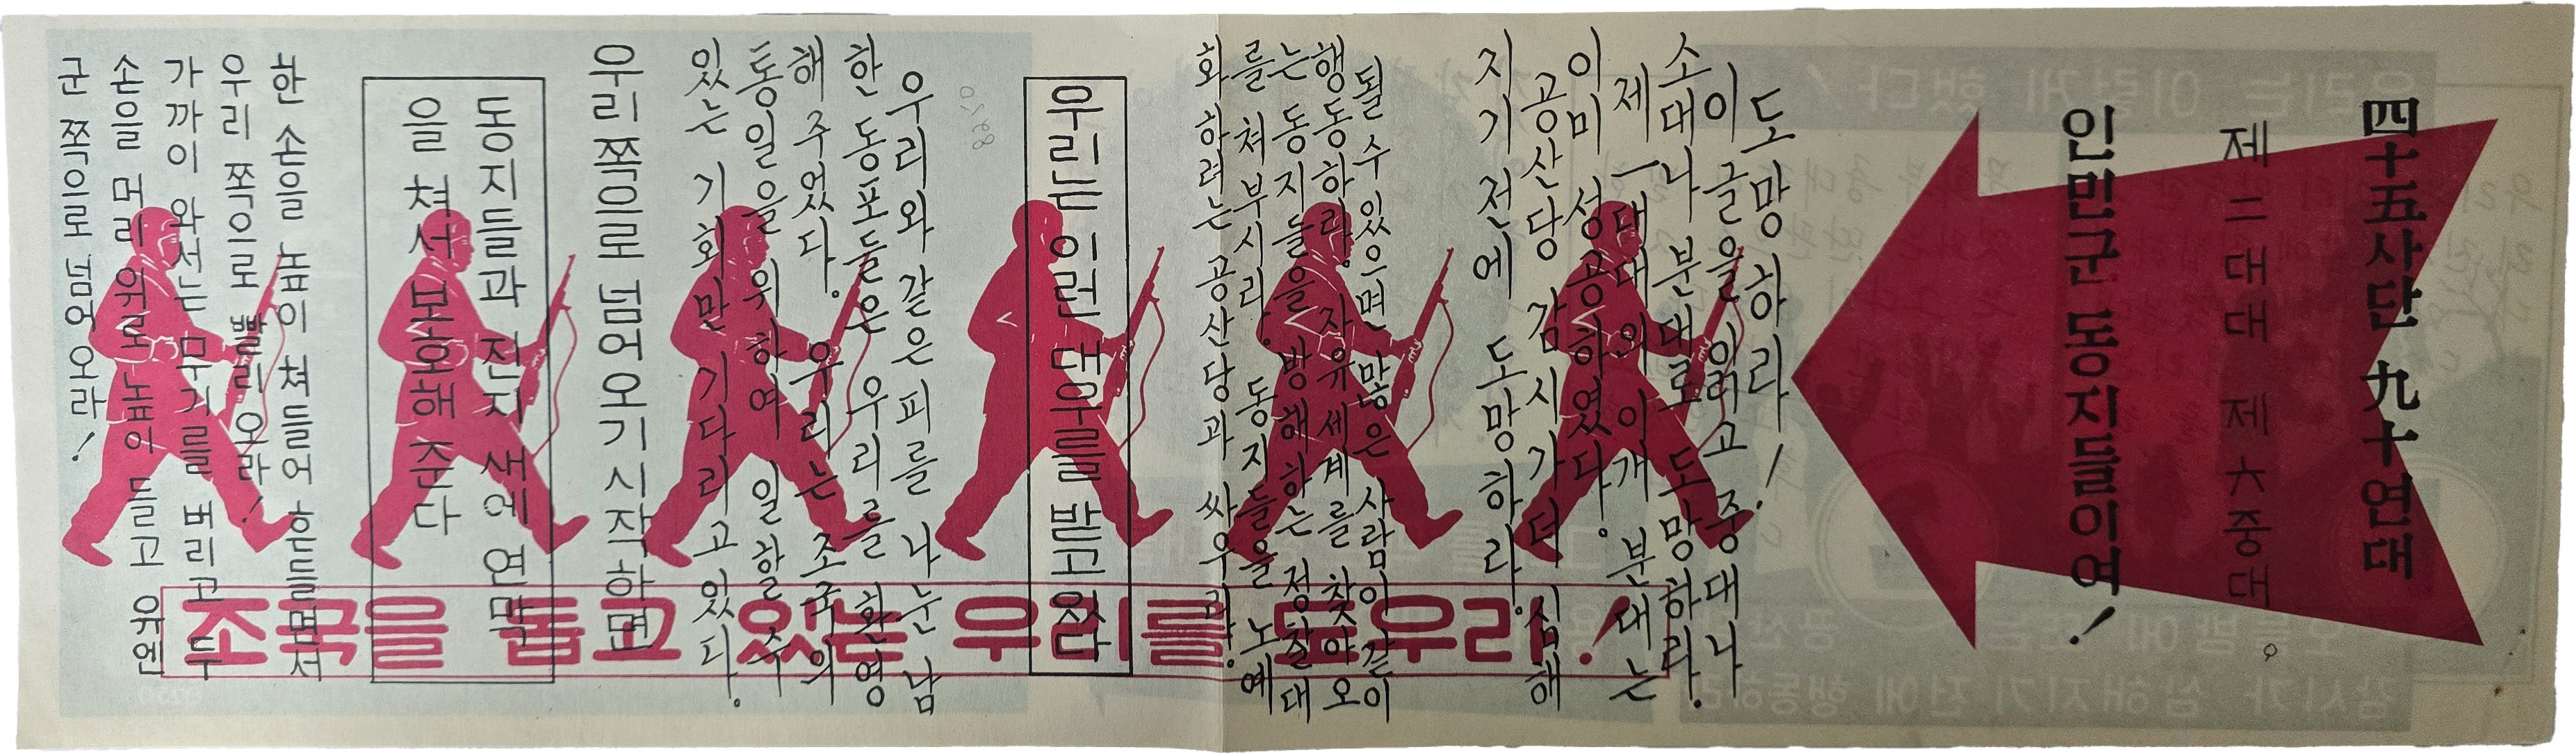 四十五사단 九十연대
제二대대 제六중대
인민군 동지들이여!
도망하라!
이 글을 읽고 중대나
소대나 분대로 도망하라.
제一대대의 이개 분대는
이미 성공하였다.
공산당 감시가 더 심해
지기 전에 도망하라.
될 수 있으면 많은 사람이 같이
행동하라. 자유세계를 찾아오
는 동지들을 방해하는 정찰대
를 쳐부시라. 동지들을 노예
화 하려는 공산당과 싸우라.
우리는 이런 대우를 받고 있다
우리와 같은 피를 나눈 남
한 동포들은 우리를 환영
해 주었다. 우리는 조국의
통일을 위하여 일할 수
있는 기회만 기다리고 있다.
우리 쪽으로 넘어오기 시작하면
동지들과 진지 새에 연막
을 쳐서 보호해 준다
한 손을 높이 쳐들어 흔들면서
우리 쪽으로 빨리 오라!
가까이 와서는 무기를 버리고 두
손을 머리 위로 높이 들고 유엔
군 쪽으로 넘어 오라!
조국을 돕고 있는 우리를 도우라!